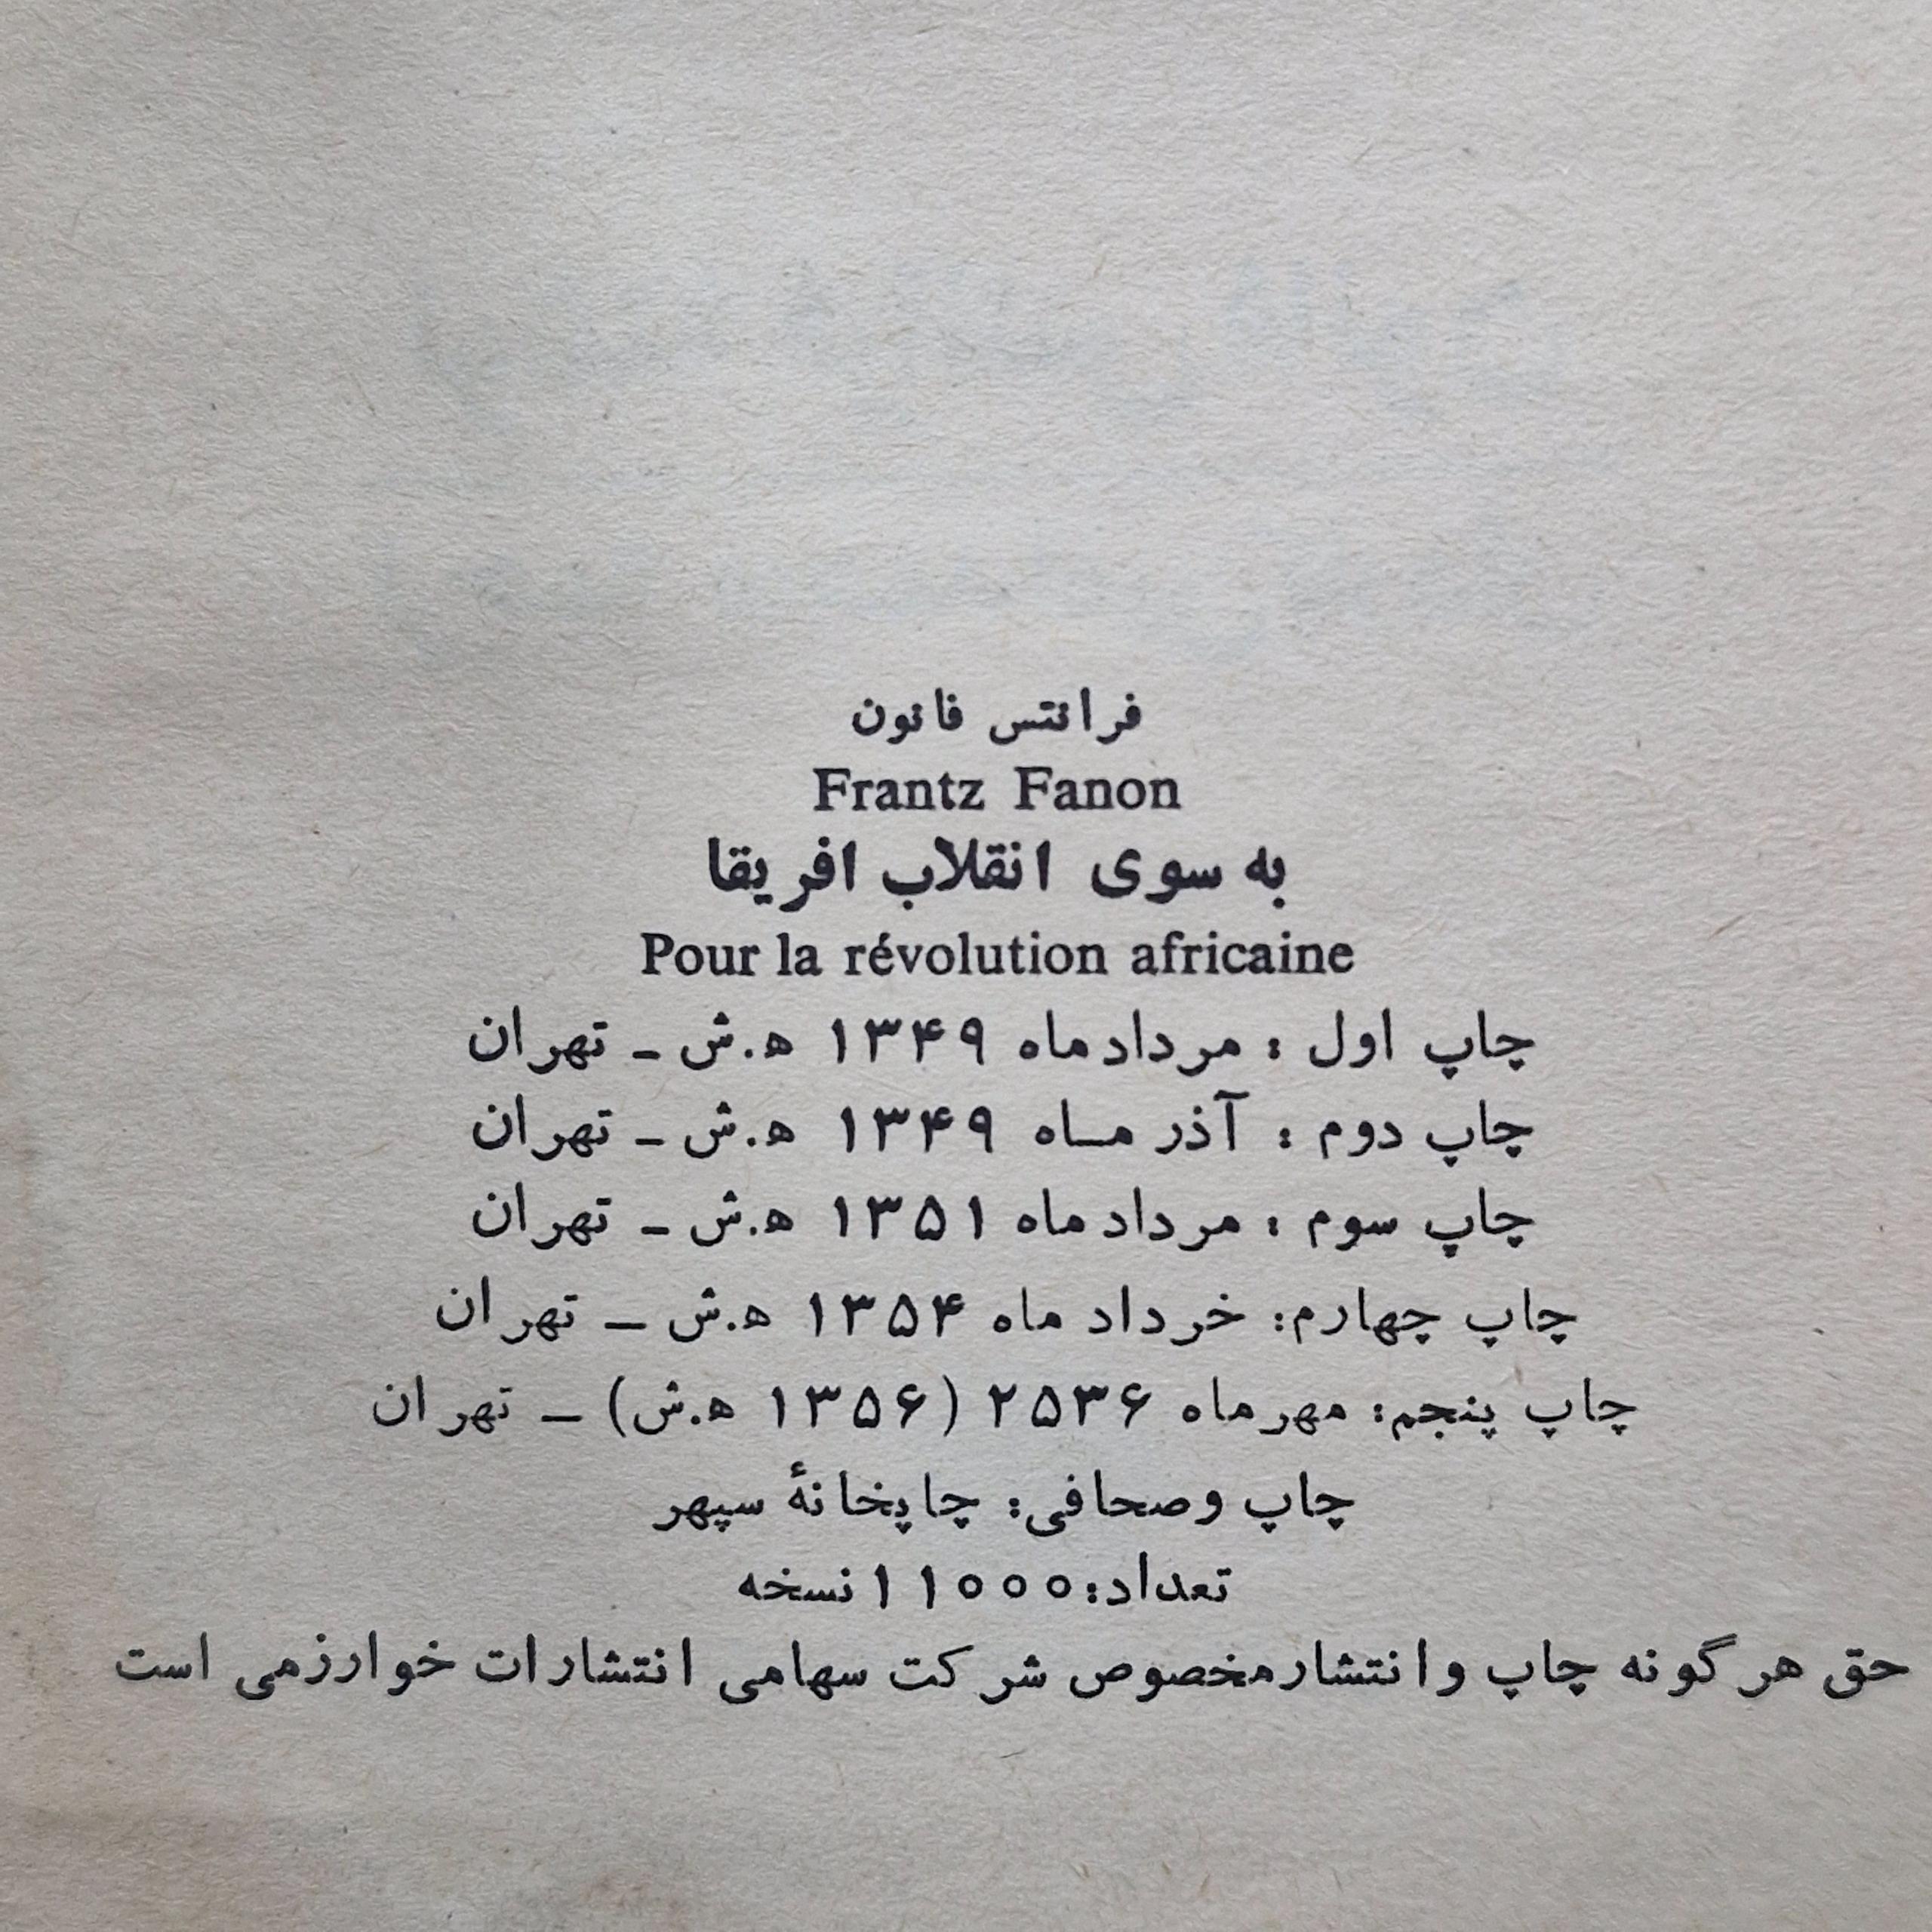 فرانتس فانون
Frantz Fanon
به سوی انقلاب افریقا
Pour la révolution africaine
چاپ اول : مردادماه ۱۳۴۹ ه.ش - تهران
چاپ دوم : آذر ماه ۱۳۴۹ ه.ش - تهران
چاپ سوم : مردادماه ۱۳۵۱ ه.ش - تهران
چاپ چهارم: خرداد ماه ۱۳۵۴ ه.ش – تهران
چاپ پنجم: مهرماه ۲۵۳۶ (۱۳۵۶ ه.ش) – تهران
چاپ وصحافی: چاپخانهٔ سپهر
تعداد: ۱۱۰۰۰ نسخه
حق هرگونه چاپ وانتشارمخصوص شرکت سهامی انتشارات خوارزمی است